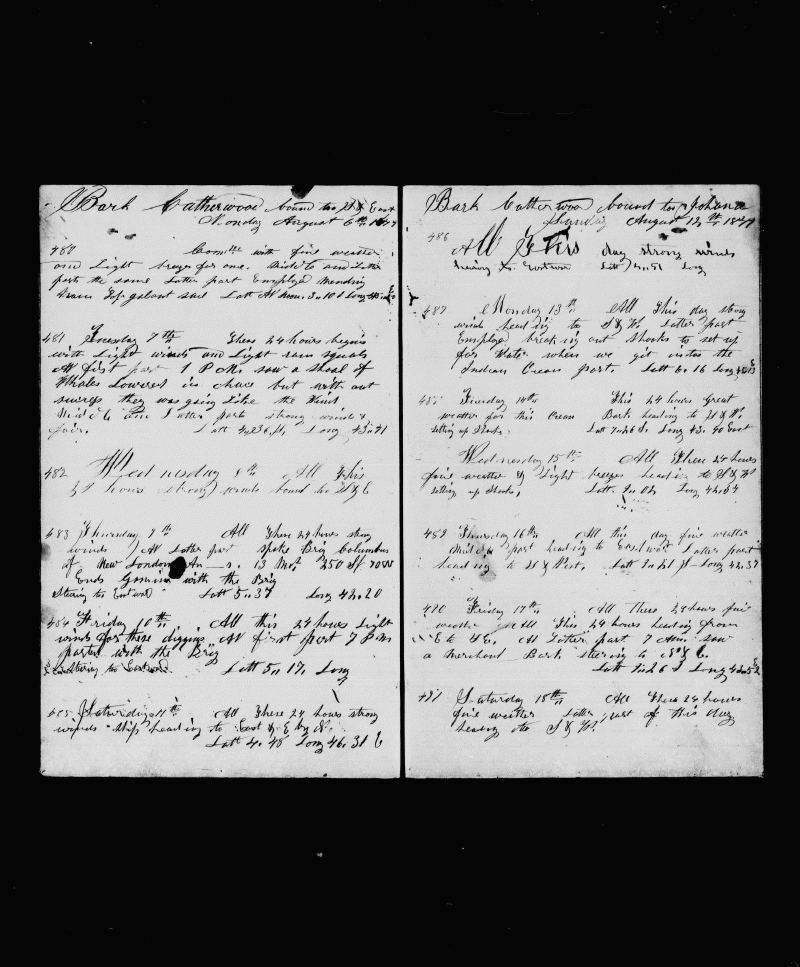 Bark Catherwood bound to S & East
Monday August 6th 1849
480 Comes with fine weather
and Light breezes for one. Midd & and Latter
parts the same Latter part Employed mending
main Top galant sail Latt
481 Tuesday 7th These 24 hours begins
with Light winds and Light rain squals
At first part 1 P M saw a shoal of
Whales Lowered in chase but with out
success they was going Like the Wind
Midd & and Latter parts strong winds &
fair. Latt Long
482 Wednesday 8th All This
24 hours strong winds bound to S & E
483 Thursday 9th All These 24 hours strong
winds At Latter part spoke Brig Columbus
of New London 13 Mos 250 Sp
Ends Gaming with the Brig
Stearing to Eastward Latt 5. 37 Long 42. 20
484 Friday 10th All this 24 hours Light
winds for these diggins At first part 7 P M
parted with the Brig
Stering to Eastward Latt 5. 17 Long
485 Saturday 11th All These 24 hours strong
winds Ship heading to East & E by N.
Latt 4. 48 Long 46. 31 E
Bark Catherwood bound to Johana
Sunday August 12th 1849
486 All This day strong winds
heaing to Eastward Latt 4. 51 Long
487 Monday 13th All This day strong
winds heading to S & W. Latter part
Employed breaking out Shooks to set up
for Water when we git into the
Indian Ocean part. Latt 6. 16 Long
488 Tuesday 14th This 24 hours Great
weather for this Ocean Bark heading to S & W.
setting up Shooks. Latt 7. 26 S. Long 43. 40 East
Wednesday 15th All These 24 hours
fine weather & Light breezes heading to S & W
setting up Shooks, Latt Long 42. 54
489 Thursday 16th All this day fine weather
Midd part heading to Eastward Latter part
heading to S & West. Latt 9. 21 Long 42. 37
490 Friday 17th All These 24 hours fine
weather All This 24 hours heading from
E to S E. At Latter part 7 A M saw
a Merchant Bark stering to N & E.
Latt 9. 26 S Long
491 Saturday 18th All These 24 hours
fine weather Latter part of this day
heading to S & W.